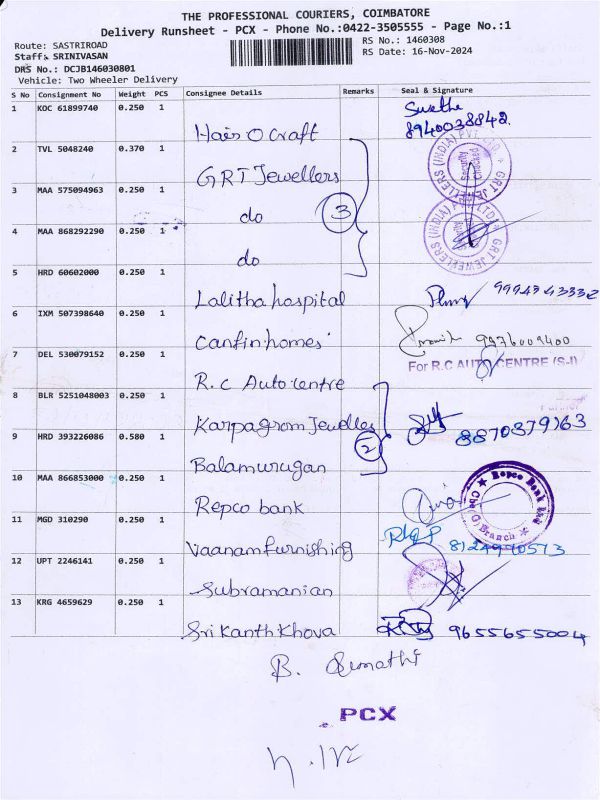 THE PROFESSIONAL COURIERS, COIMBATORE
Delivery Runsheet - PCX - Phone No.:0422-3505555 - Page No.:1
Route: SASTRIROAD
RS No.: 1460308
Staff: SRINIVASAN
RS Date: 16-Nov-2024
DRS No.: DCJB146030801
Vehicle: Two Wheeler Delivery
S No Consignment No Weight PCS Consignee Details Remarks Seal & Signature
1 KOC 61899740 0.250 1 Hair O Craft Swetha
8940038842
2 TVL 5048240 0.370 1 GRT Jewellers
3 MAA 575094963 0.250 1 do 3
4 MAA 868292290 0.250 1 do
GRT JEWELLERS (INDIA) PVT. LTD.
Security Checked
GRT JEWELLERS (INDIA) PVT. LTD.
5 HRD 60602000 0.250 1 Lalitha hospital
6 IXM 507398640 0.250 1 Canfin homes 9976009400
7 DEL 530079152 0.250 1 R.C Auto centre For R.C AUTO CENTRE (S-I)
8 BLR 5251048003 0.250 1 Karpagam Jewelles 8870379163
2
9 HRD 393226086 0.580 1 Balamurugan
10 MAA 866853000 0.250 1 Repco bank
Repco Bank Ltd
Branch
11 MGD 310290 0.250 1 Vaanam furnishing
12 UPT 2246141 0.250 1 Subramanian
13 KRG 4659629 0.250 1 Sri Kanth Khova 9655655004
B. Sumathi
PCX